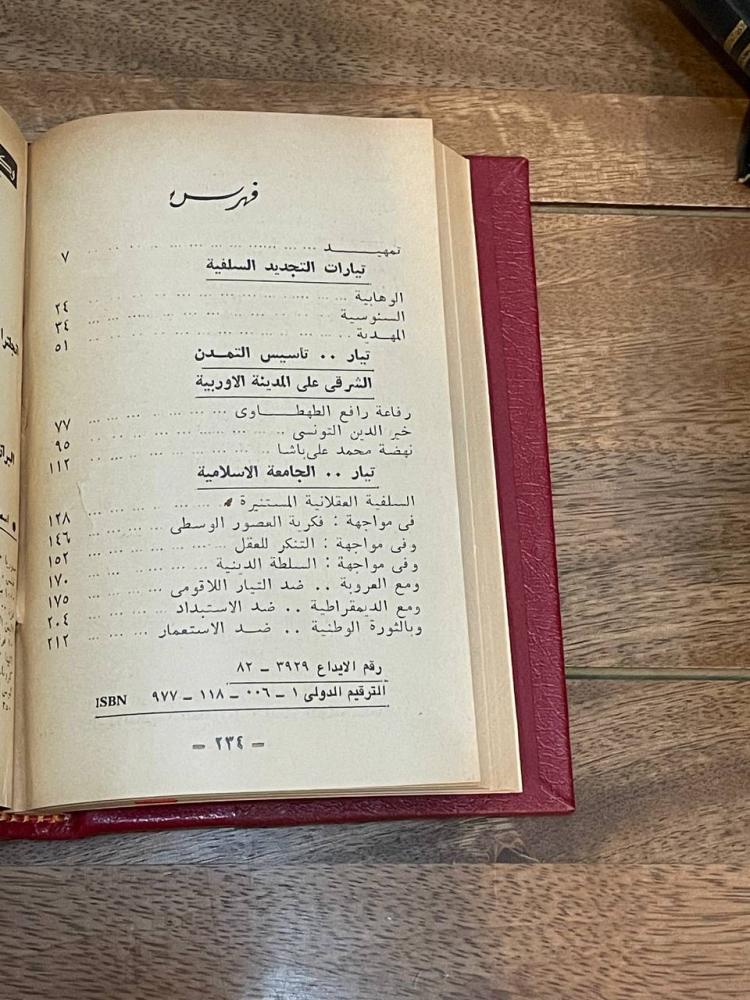 فهرس
تمهيـــد ... ... ... ... ... ... ... ٧
تيارات التجديد السلفية
الوهابية ... ... ... ... ... ... ... ٢٤
السنوسية ... ... ... ... ... ... ... ٣٤
المهـدية ... ... ... ... ... ... ... ٥١
تيار .. تأسيس التمـدن
الشرقى على المدينة الاوربية
رفاعة رافع الطهطـــاوى ... ... ... ... ... ٧٧
خير الدين التونسى ... ... ... ... ... ٩٥
نهضة محمد على باشا ... ... ... ... ... ١١٢
تيار .. الجامعة الاسلامية
السلفية العقلانية المستنيرة ... ... ... ١٢٨
فى مواجهة : فكرية العصور الوسطى ... ... ... ١٤٦
وفى مواجهة : التنكر للعقل ... ... ... ... ١٥٢
وفى مواجهة : السلطة الدينية ... ... ... ١٧٠
ومع العروبة .. ضد التيار اللاقومى ... ... ... ١٧٥
ومع الديمقراطية .. ضد الاستبداد ... ... ... ٢٠٤
وبالثورة الوطنية .. ضـد الاستعمار ... ... ... ٢١٢
رقم الايداع ٣٩٢٩ – ٨٢
الترقيم الدولى ١ – ٠٠٦ – ١١٨ – ٩٧٧ ISBN
– ٢٣٤ –